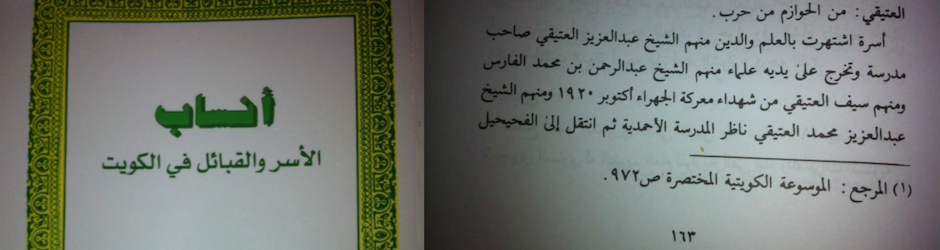 أنساب
الأسر والقبائل في الكويت
العتيقي : من الخوازم من حرب .
أسرة اشتهرت بالعلم والدين منهم الشيخ عبدالعزيز العتيقي صاحب
مدرسة وتخرج على يديه علماء منهم الشيخ عبدالرحمن بن محمد الفارس
ومنهم سيف العتيقي من شهداء معركة الجهراء أكتوبر ١٩٢٠ ومنهم الشيخ
عبدالعزيز محمد العتيقي ناظر المدرسة الأحمدية ثم انتقل إلى الفحيحيل
(١) المرجع : الموسوعة الكويتية المختصرة ص٩٧٢ .
١٦٣